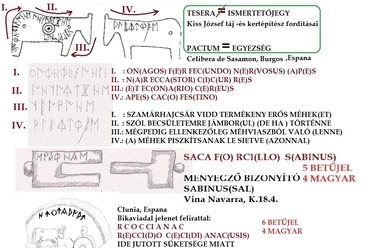 I.
II.
III.
IV.
TESERA ≠ ISMERTETŐJEGY
Kiss József táj -és kertépítész fordításai
PACTUM = EGYEZSÉG
Celibera de Sasamon, Burgos ,Espana
I. : ON(AGOS) F(E)R FEC(UNDO) N(E)R(VOSUS) (A)P(E)S
II. : N(A)R ECCA(STOR) C(I)C(UR) R(E)S
III. : (E)T EC(ON)A(RIO) C(E)R(E)US
IV. : APE(S) CAC(O) FES(TINO)
I.
II.
III.
IV.
I. : SZAMÁRHAJCSÁR VIDD TERMÉKENY ERŐS MÉHEK(ET)
II. : SZÓL BECSÜLETEMRE JÁMBOR(UL) (DE HA ) TÖRTÉNNE
III. : MÉGPEDIG ELLENKEZŐLEG MÉHVIASZBÓL VALÓ (LENNE)
IV. : (A) MÉHEK PISZKÍTSANAK LE SIETVE (AZONNAL)
SACA F(O) RCI(LLO) S(ABINUS)
5 BETŰJEL
MENYEGZŐ BIZONYÍTÓ
4 MAGYAR
SABINUS(SAL)
Vina Navarra, K.18.4.
Clunia, Espana
Bikaviadal jelenet felirattal:
R C O C C I A N A C
6 BETŰJEL
R(E)C(CID)O C(E)C(IDI) ANAC(USIS)
4 MAGYAR
IDE JUTOTT SÜKETSÉGE MIATT